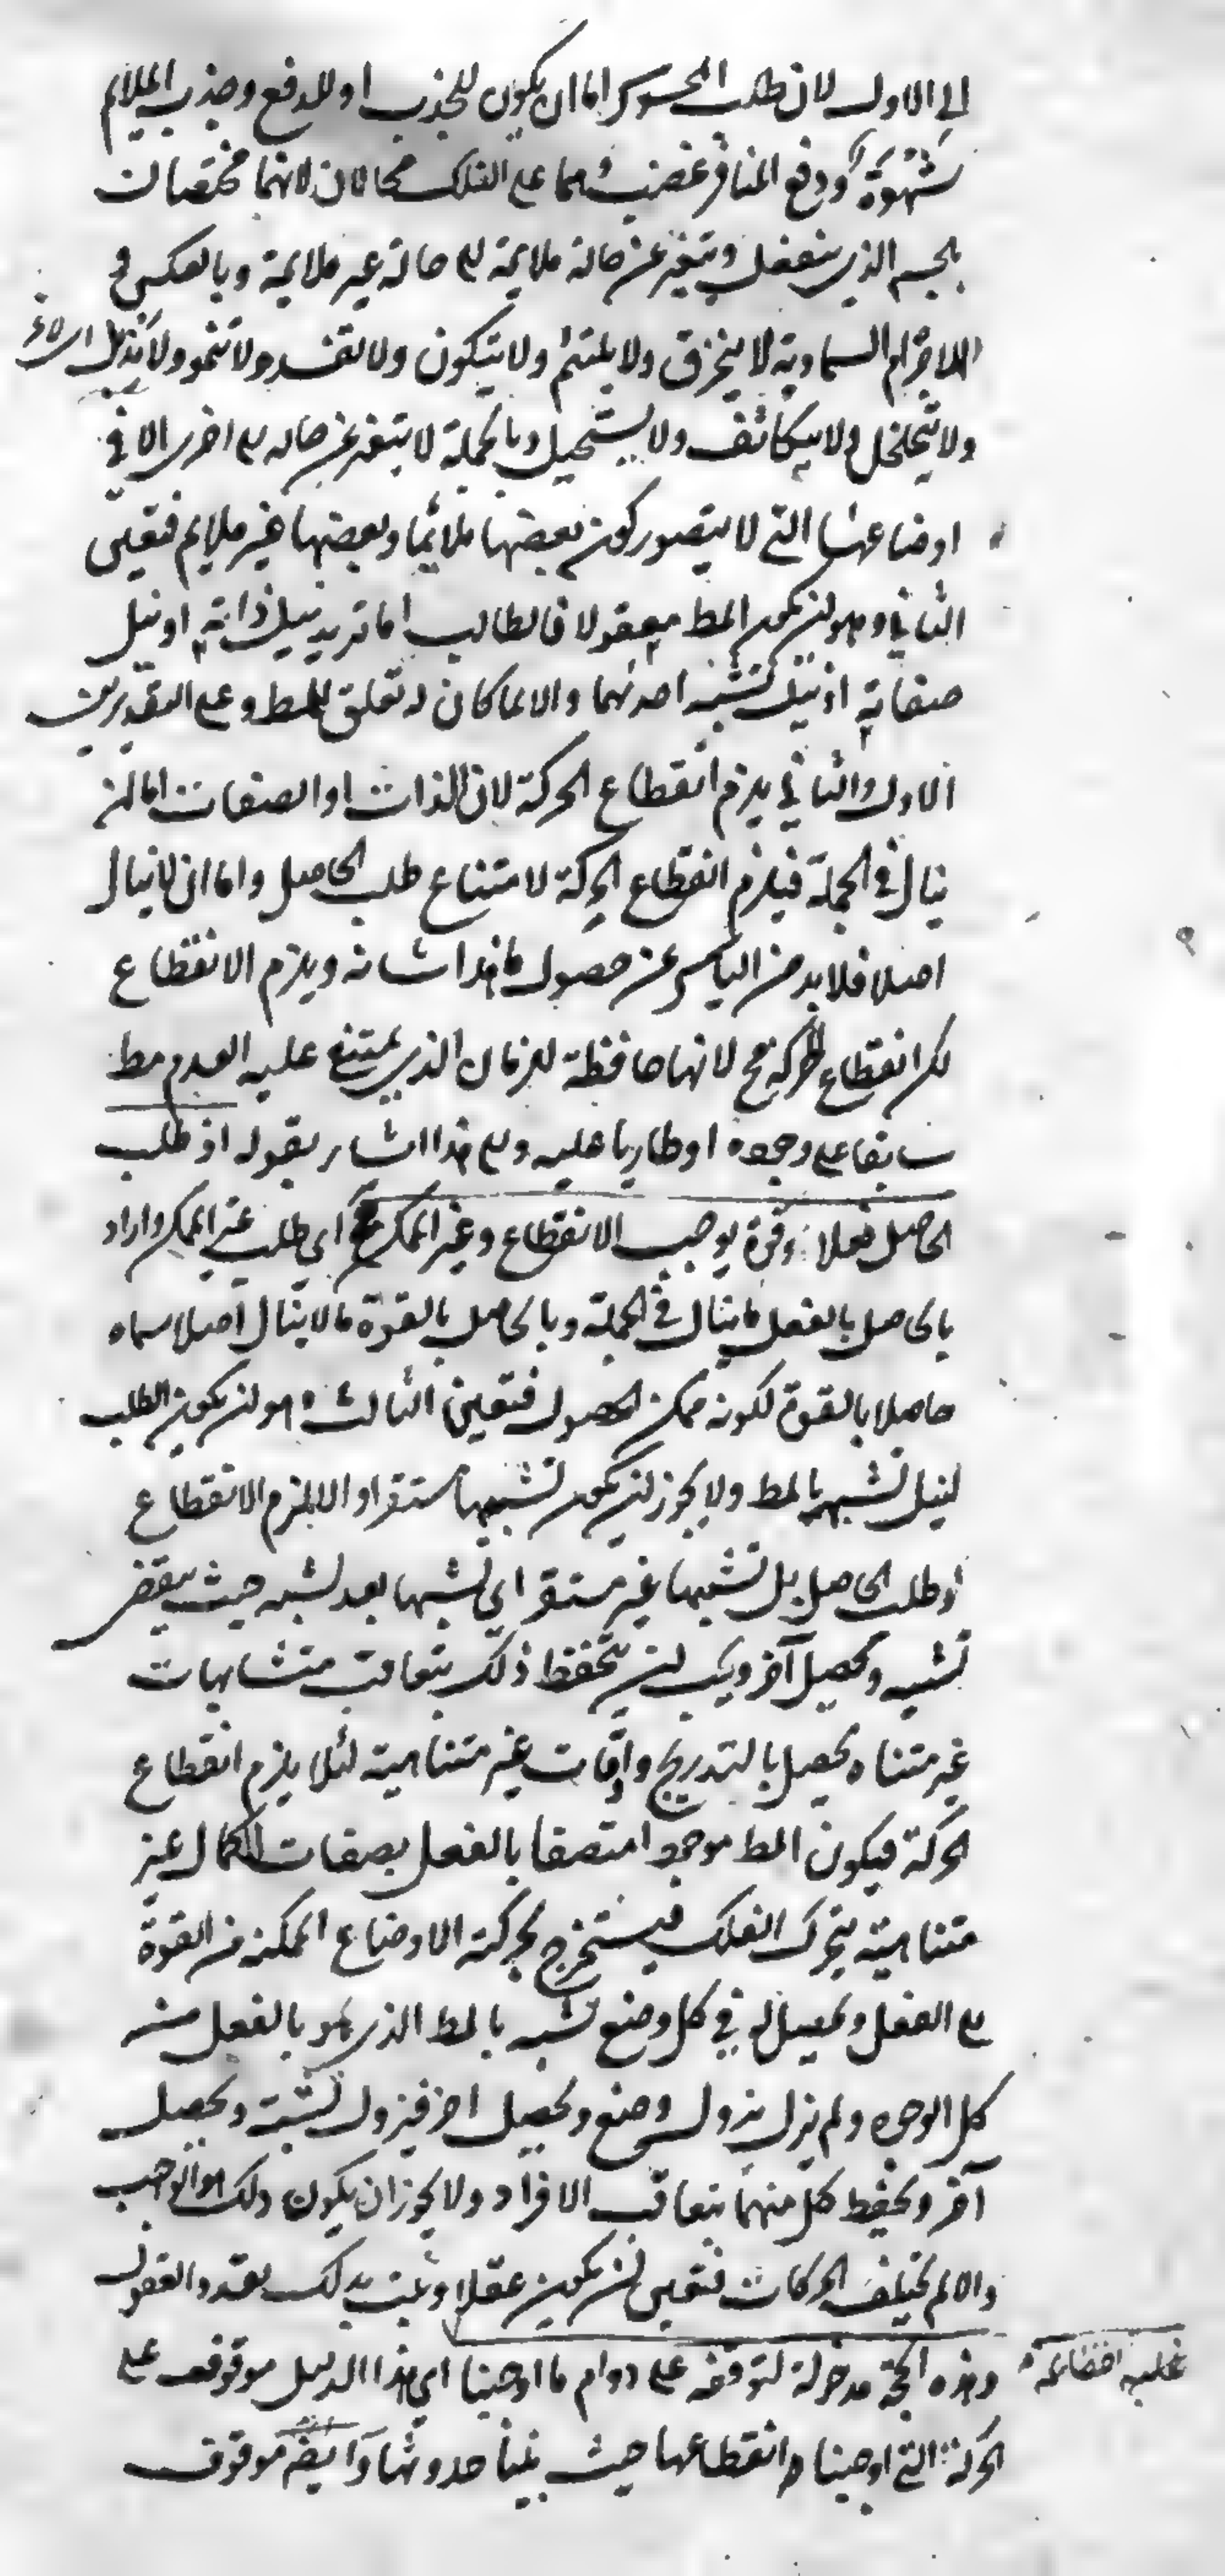 الى الاول لان طلب المحسوس اما ان يكون للجذب او للدفع وجذب الملايم
شهوة ودفع المنافر غضب وهما على الفلك محالان لانهما مختصان
بالجسم الذي ينفعل ويتغير عن حالة ملايمة الى حالة غير ملايمة وبالعكس و
الاجرام السماوية لا ينخرق ولا يلتئم ولا يتكون ولا تفسد ولا تنمو ولا تذبل
ولا يتخلخل ولا يتكاثف ولا يستحيل وبالجملة لا يتغير عن حاله الى اخرى الا في
اوضاعها التي لا يتصور كون بعضها ملائما وبعضها غير ملايم فتعين
الثاني وهو ان يكون المط معقولا فالطالب اما تريد نيل ذاته او نيل
صفاته او نيل تشبه احدهما والا لما كان له تعلق بالمط وعلى التقديرين
الاول والثاني يلزم انقطاع الحركة لان الذات او الصفات اما ان
ينال في الجملة فيلزم انقطاع الحركة لامتناع طلب الحاصل واما ان لا ينال
اصلا فلا بد من الياس عن حصول ما هذا شانه ويلزم الانقطاع
لكن انقطاع الحركة مح لانها حافظة للزمان الذي يمتنع عليه العدم مط
سابقا على وجوده او طاريا عليه والى هذا اشار بقوله اذ طلب
الحاصل فعلا وقوة يوجب الانقطاع وغير الممكن مح اي طلب غير الممكن واراد
بالحاصل بالفعل ما ينال في الجملة وبالحاصل بالقوة ما لا ينال اصلا سماه
حاصلا بالقوة لكونه ممكن الحصول فتعين الثالث وهو ان يكون الطلب
لنيل تشبه بالمط ولا يجوز ان يكون تشبها مستقرا والا لزم الانقطاع
او طلب الحاصل بل تشبها غير مستقر اي تشبها بعد تشبه حيث ينقضي
تشبه ويحصل آخر ويجب ان يحفظ ذلك بتعاقب متشابهات
غير متناه يحصل بالتدريج واوقات غير متناهية لئلا يلزم انقطاع
الحركة فيكون المط موجودا متصفا بالفعل بصفات الكمال غير
متناهية يتحرك الفلك فيستخرج بحركته الاوضاع الممكنه من القوة
الى الفعل ويحصل له في كل وضع تشبه بالمط الذي هو بالفعل من
كل الوجوه ولم يزل يزول وضع ويحصل اخر فيزول تشبه ويحصل
آخر ويحفظ كل منهما بتعاقب الافراد ولا يجوز ان يكون ذلك هو الواجب
والا لم تختلف الحركات فتعين ان يكون عقلا وثبت بذلك تعدد العقول
وهذه الحجة مدخولة لتوقفه على دوام ما اوجبنا اي هذا الدليل موقوف على
الحركة التي اوجبنا انقطاعها حيث بينا حدوثها وايضا موقوف